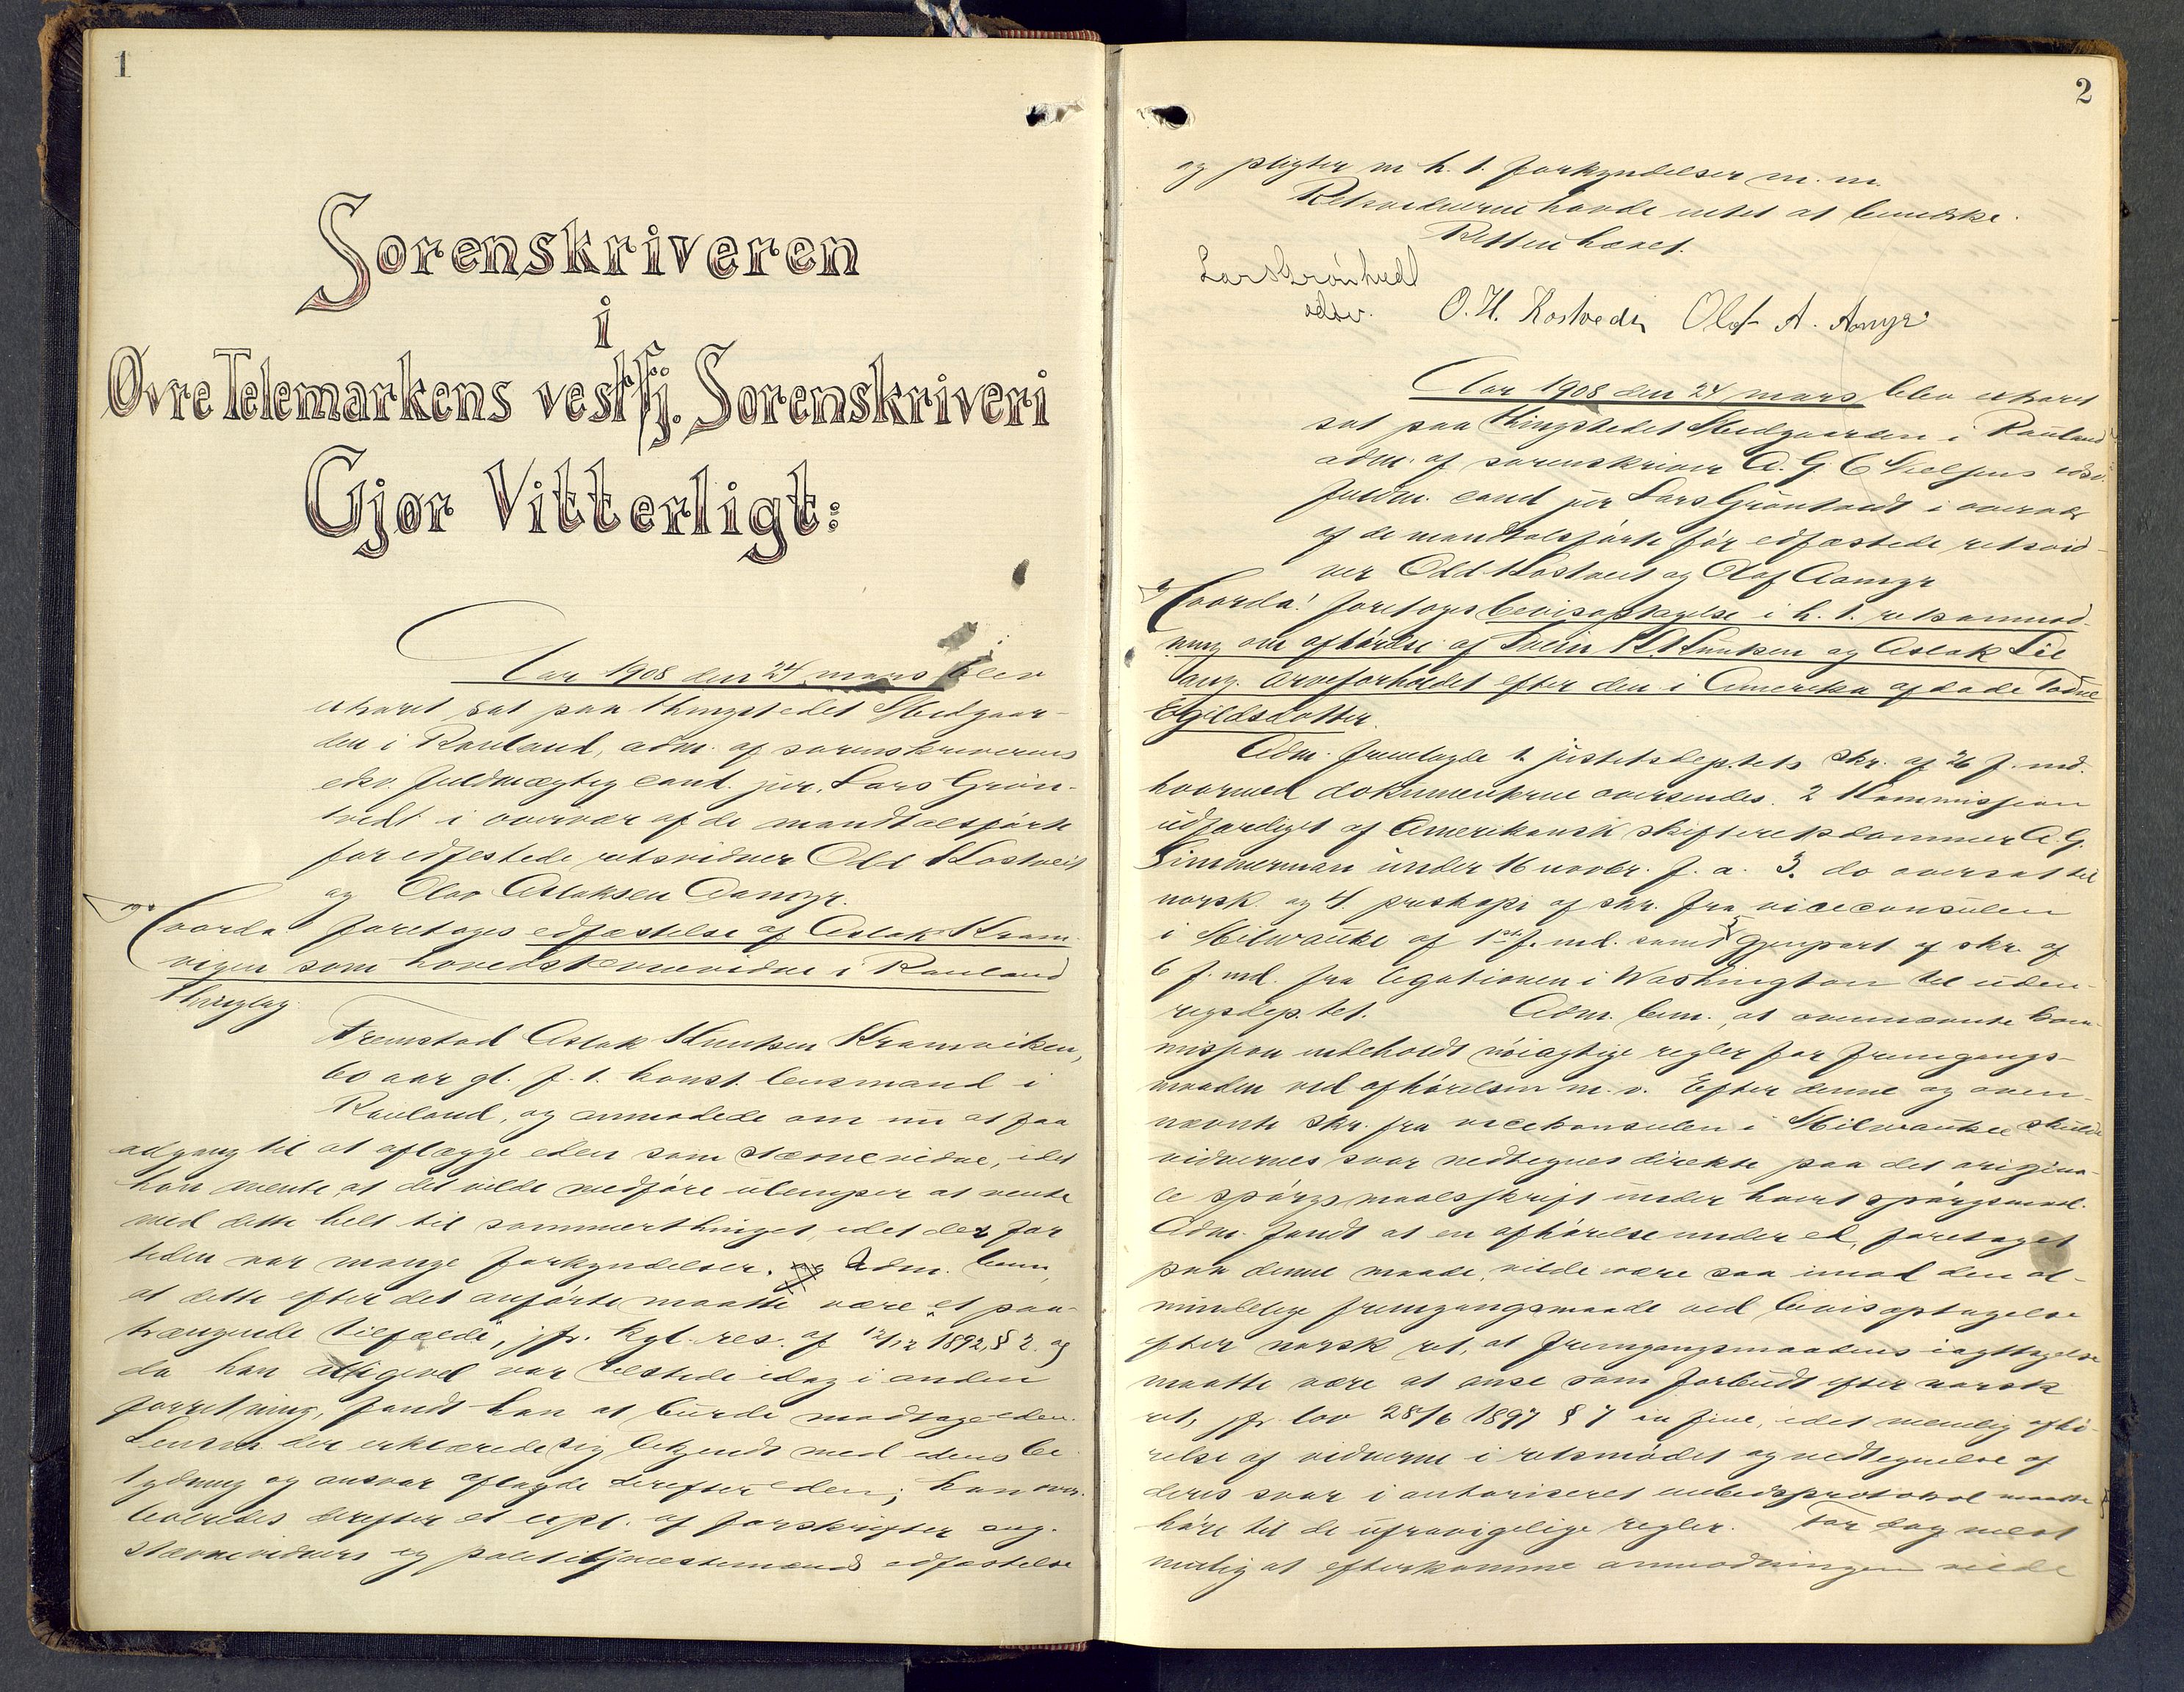 1
Sorenskriveren
i
Øvre Telemarkens vestfj. Sorenskriveri
Gjør Vitterligt:
Aar 1908 den 24 mars blev
extraret sat paa thingstedet Midgaar-
den i Rauland, adm. af sorenskriverens
edsv. fuldmægtig cand. jur. Lars Grøn-
tvedt i overvær af de mandtalsførte
før edfestede retsvidner Odd Kostveit
og Olav Aslaksen Aamyr.
Hvorda foretoges edfæstelse af Aslak Kram-
vigen som hovedstevnevidne i Rauland
thinglag.
Fremstod Aslak Knutsen Kramviken,
60 aar gl. f. t. konst. lensmand i
Rauland, og anmodede om nu at faa
adgang til at aflægge eden som stævnevidne, idet
han mente at det vilde medføre ulemper at vente
med dette helt til sommerthinget, idet der for
tiden var mange forkyndelser. Adm. bem.
at dette efter det anførte maatte være "et paa-
trængende tilfælde", jfr. kgl. res. af 12/12 1892, § 2. og
da han alligevel var tilstede idag i anden
forretning, fandt han at burde modtage eden.
Lensm. der erklærede sig bekjendt med edens be-
tydning og ansvar aflagde derefter eden; han over-
leveredes derefter et expl. af forskrifter ang.
stævnevidners og politibetjenestemænds edfæstelse
2
og pligter m. h. t. forkyndelser m. m.
Retsvidnerne havde intet at bemerke.
Retten hævet.
Lars Grøntvedt
edsv.
O. H. Kostvedt Olaf A. Aamyr
Aar 1908 den 24 mars blev extraret
sat paa thingstedet Midgaarden i Rauland
adm. af sorenskriver A. G. C edsv.
fuldm. cand jur Lars Grøntvedt i overvær
af de mandtalsførte før edfæstede retsvid-
ner Odd Kostveit og Olaf Aamyr
Hvorda! foretoges bevisoptagelse i h. t. retsanmod-
ning om afhørelse af Svein Knutsen og Aslak Lie
ang. arveforholdet efter den i Amerika afdøde Tone
Egildsdotter.
Adm. fremlagde 1. justitsdeptets skr. af 26 f. md.
hvormed dokumenterne oversendes. 2 Kommission
udfærdiget af Amerikansk skifteretsdommer A. G.
Zimmerman under 16 novbr. f. a. 3. do oversat til
norsk. og 4 genskap af skr. fra viceconsulen
i Milwauke af 1st f. md. samt 5 gjenpart af skr. af
6 f. md. fra legationen i Washington til uden-
rigsdep.tet. Adm. bem., at ovennævnte kom-
mission indeholdt nøiagtige regler for fremgangs-
maaden ved afhørelsen m. v. Efter denne og oven-
nævnte skr. fra vicekonsulen i Milwaukee skulde
vidnernes svar nedtegnes direkte paa det origina-
le spørgsmaalsskrift under hvert spørgsmaal.
Adm. fandt at en afhørelse under ed, foretaget
paa denne maade, vilde være saa imod den al-
mindelige fremgangsmaade ved bevisoptagelse
efter norsk ret, at fremgangsmaadens iagttagelse
maatte være at anse som forbudt efter norsk
ret, jfr. lov 28/6 1897 § 7 in fine, idet nemlig afhø-
relse af vidnerne i retsmødet og nedtegnelse af
deres svar i autoriseret protokol maatte
høre til de ufravigelige regler. For dog mest
mulig at efterkomme anmodningen vilde